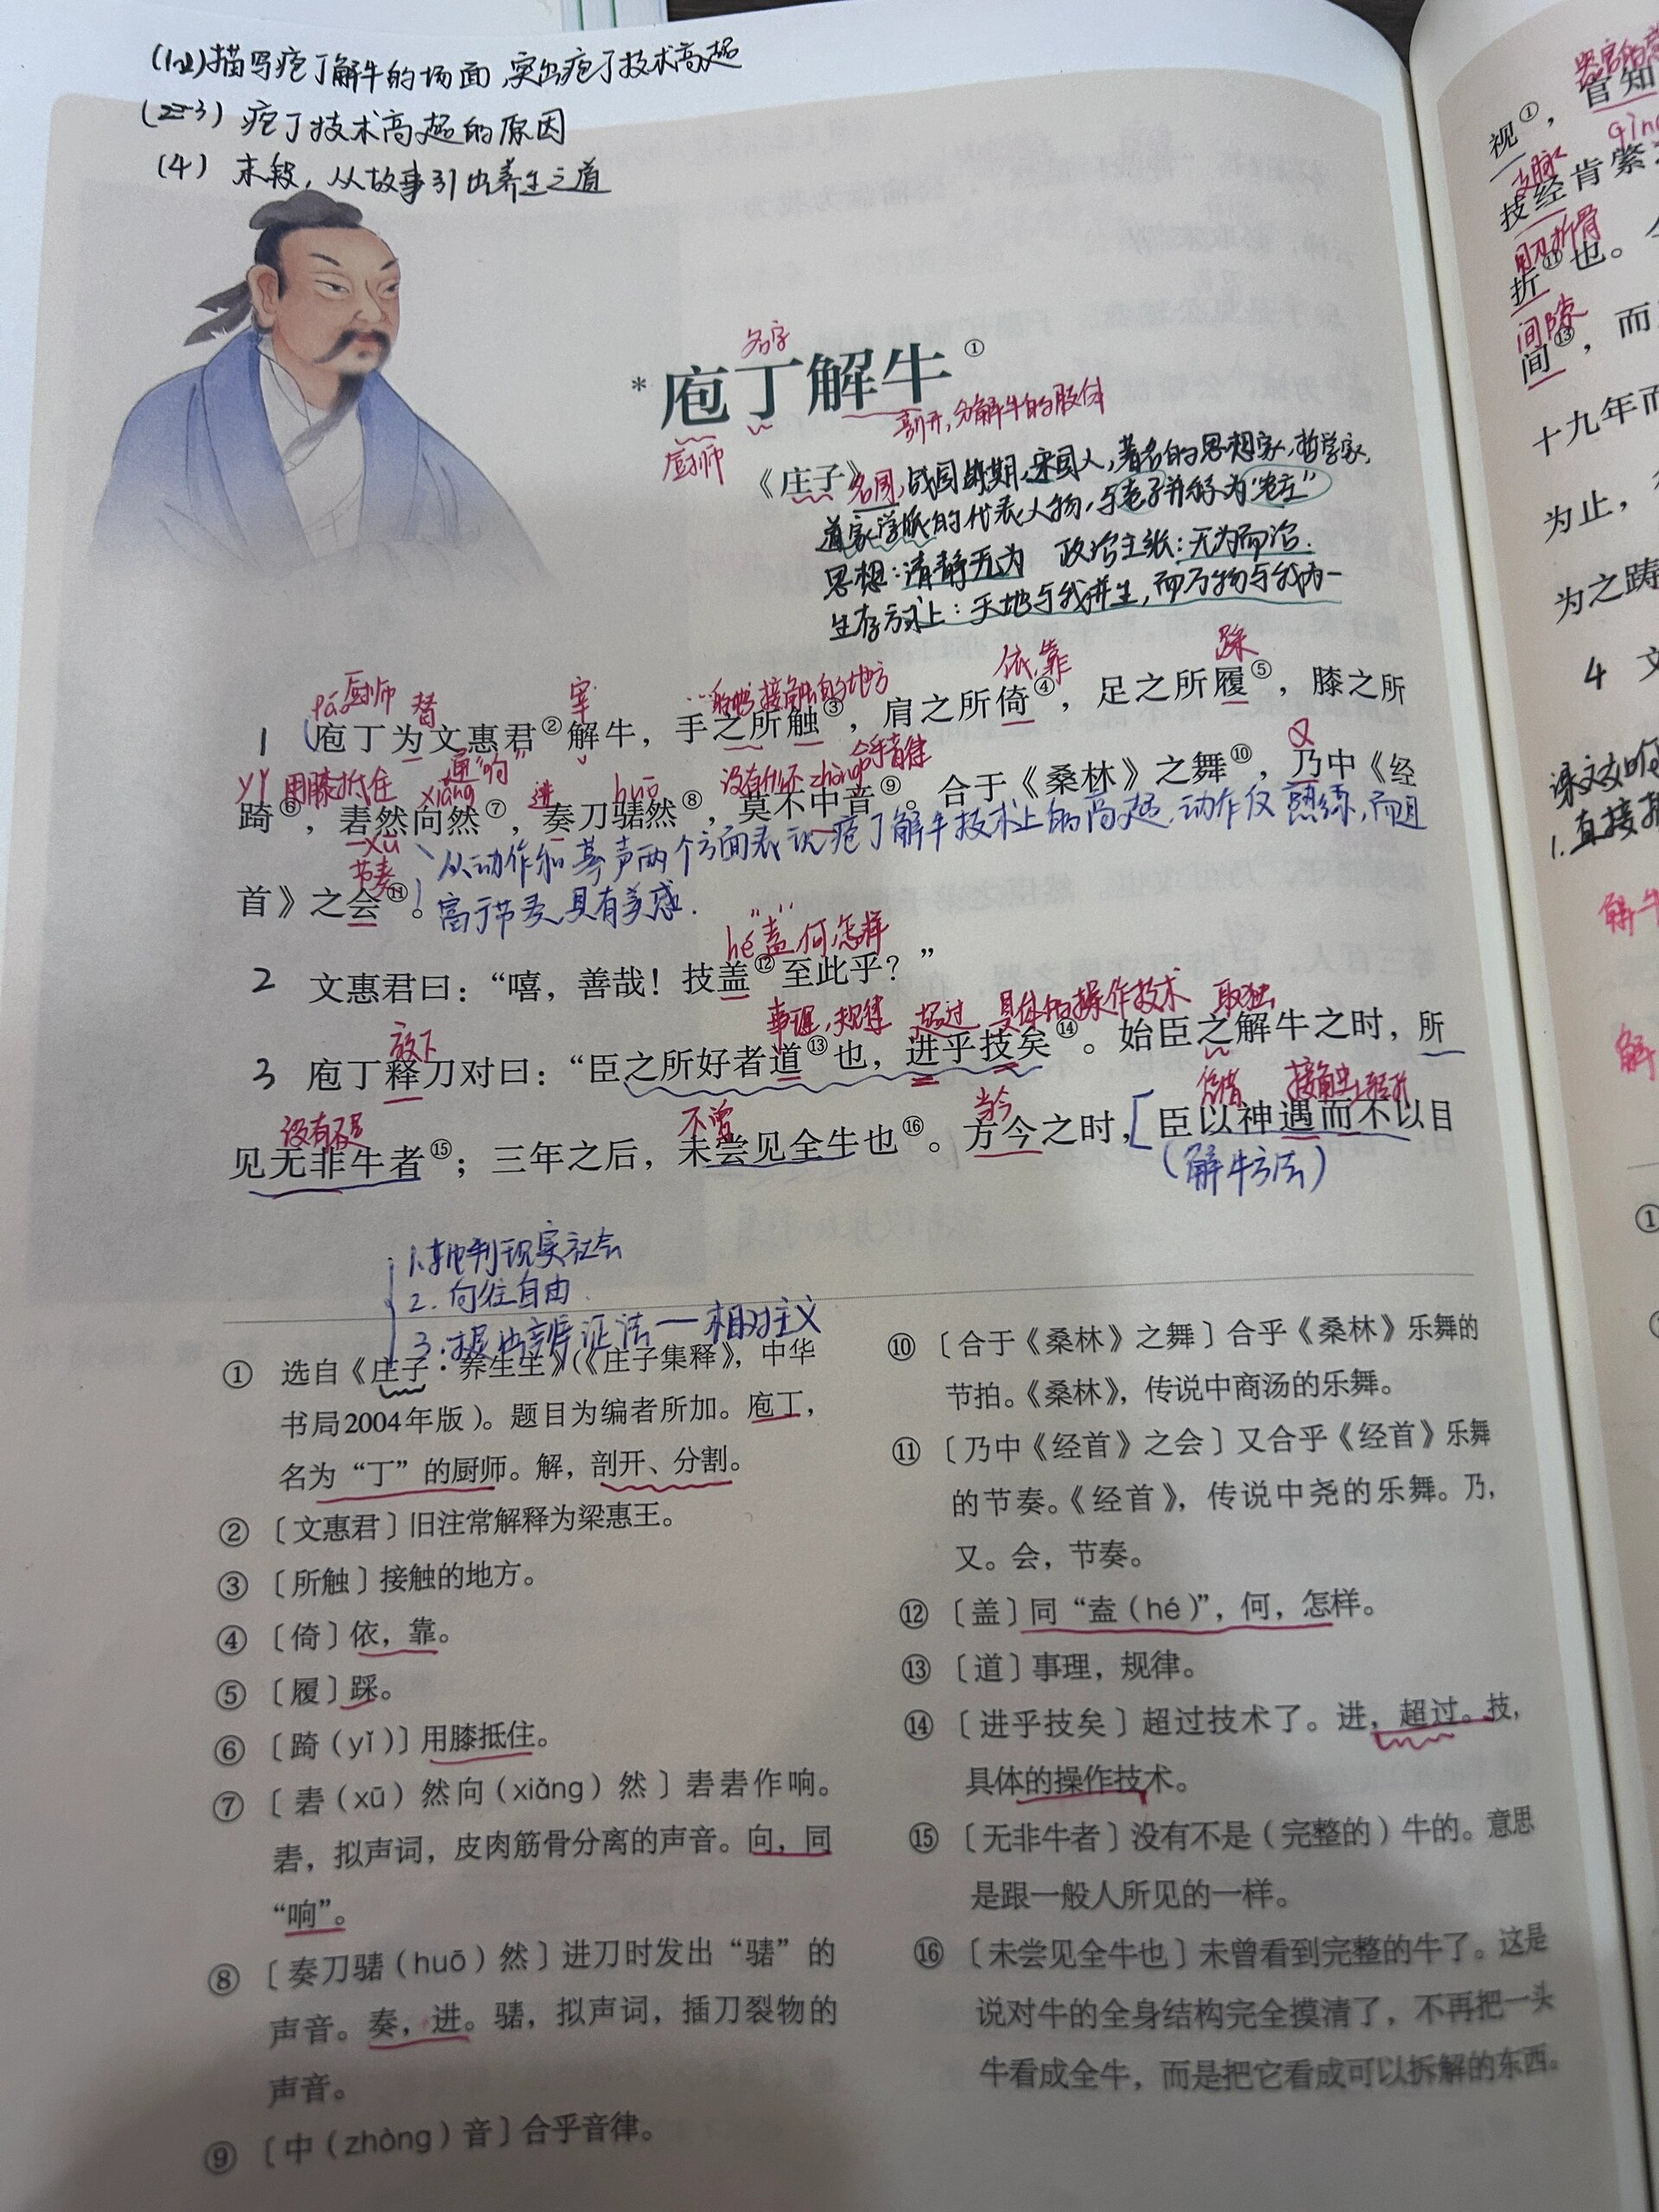 (1、2)描写庖丁解牛的场面,突出庖丁技术高超
(2-3) 庖丁技术高超的原因
(4) 末段,从故事引出养生之道
名字
*庖丁解牛①
剖开,分解牛的肢体
厨师
《庄子》名周,战国时期,宋国人,著名的思想家,哲学家,
道家学派的代表人物,与老子并称为“老庄”
思想:清静无为 政治主张:无为而治.
生存方式上:天地与我并生,而万物与我为一
páo厨师 替 宰 接触的地方 依,靠 踩
1 庖丁为文惠君②解牛,手之所触③,肩之所倚④,足之所履⑤,膝之所
yǐ 用膝抵住 xiǎng 通“响” 进 huō 没有什么不 zhòng 合乎音律 又
踦⑥,砉然向然⑦,奏刀騞然⑧,莫不中音⑨。合于《桑林》之舞⑩,乃中《经
xū 从动作和声两个方面表现庖丁解牛技术上的高超.动作仅熟练,而且
节奏
首》之会⑪。富于节奏,具有美感.
hé“盍”何,怎样
2 文惠君曰:“嘻,善哉!技盖⑫至此乎?”
放下 事理,规律 超过 具体的操作技术 取独
3 庖丁释刀对曰:“臣之所好者道⑬也,进乎技矣⑭。始臣之解牛之时,所
没有不是 不曾 当今 接触
见无非牛者⑮;三年之后,未尝见全牛也⑯。方今之时,臣以神遇而不以目
(解牛方法)
1.批判现实社会
2.向往自由
3.提出辨证法—相对主义
① 选自《庄子·养生主》(《庄子集释》,中华
书局2004年版)。题目为编者所加。庖丁,
名为“丁”的厨师。解,剖开、分割。
② 〔文惠君〕旧注常解释为梁惠王。
③ 〔所触〕接触的地方。
④ 〔倚〕依,靠。
⑤ 〔履〕踩。
⑥ 〔踦(yǐ)〕用膝抵住。
⑦ 〔砉(xū)然向(xiǎng)然〕砉砉作响。
砉,拟声词,皮肉筋骨分离的声音。向,同
“响”。
⑧ 〔奏刀騞(huō)然〕进刀时发出“騞”的
声音。奏,进。騞,拟声词,插刀裂物的
声音。
⑨ 〔中(zhòng)音〕合乎音律。
⑩ 〔合于《桑林》之舞〕合乎《桑林》乐舞的
节拍。《桑林》,传说中商汤的乐舞。
⑪ 〔乃中《经首》之会〕又合乎《经首》乐舞
的节奏。《经首》,传说中尧的乐舞。乃,
又。会,节奏。
⑫ 〔盖〕同“盍(hé)”,何,怎样。
⑬ 〔道〕事理,规律。
⑭ 〔进乎技矣〕超过技术了。进,超过。技,
具体的操作技术。
⑮ 〔无非牛者〕没有不是(完整的)牛的。意思
是跟一般人所见的一样。
⑯ 〔未尝见全牛也〕未曾看到完整的牛了。这是
说对牛的全身结构完全摸清了,不再把一头
牛看成全牛,而是把它看成可以拆解的东西。
视①,官知
支脉
技经肯綮
用刀折骨
折⑪也。
间隙
间⑬,而
十九年而
为止,
为之踌
4 文
1.直接
解牛
解
①